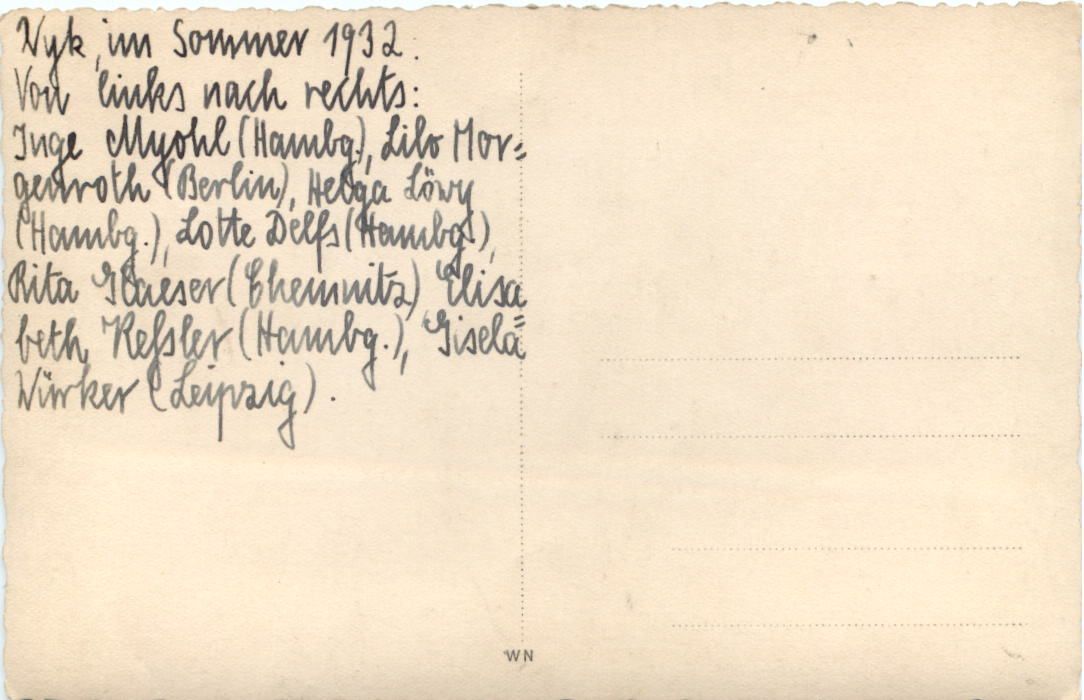 Wyk, im Sommer 1932.
Von links nach rechts:
Inge Myohl (Hambg.), Lilo Mor=
genroth (Berlin), Helga Löwy
(Hambg.), Lotte Delfs (Hambg.),
Rita Glaeser (Chemnitz) Elisa
beth Keſsler (Hambg.), Gisela
Würker (Leipzig).
WN